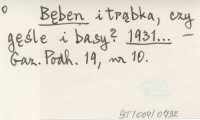 Bęben i trąbka, czy
gęśle i basy? 1931... –
Gaz. Podh. 19, nr 10.